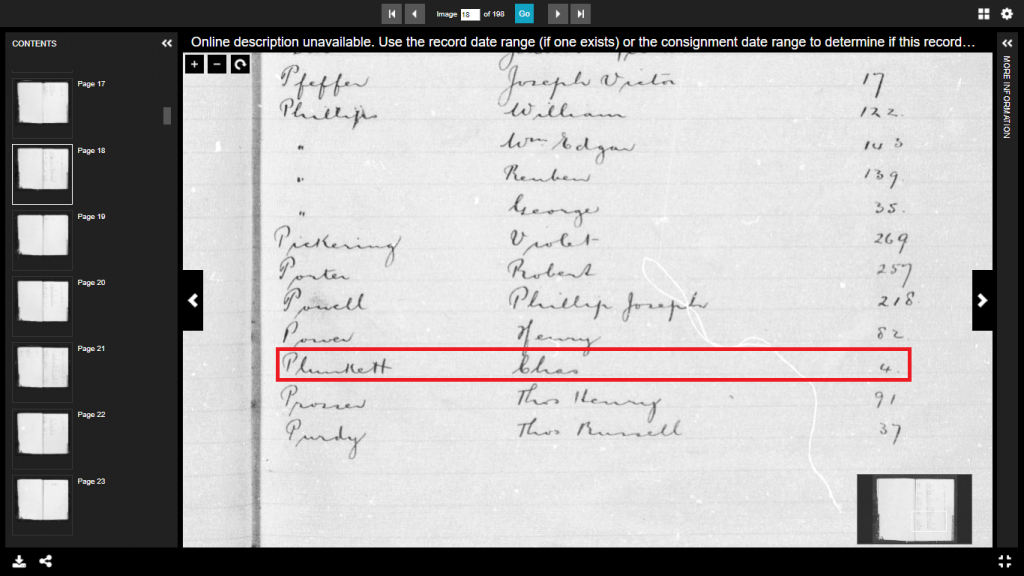 Image 18 of 198 Go
CONTENTS
Online description unavailable. Use the record date range (if one exists) or the consignment date range to determine if this record...
MORE INFORMATION
Page 17
Page 18
Page 19
Page 20
Page 21
Page 22
Page 23
Pfeffer Joseph Victor 17
Phillips William 122.
" Wm Edgar 143
" Reuben 139.
" George 35.
Pickering Violet 269
Porter Robert 257
Powell Phillip Joseph 218.
Power Henry 82.
Plunkett Chas 4.
Prosser Thos Henry 91
Purdy Thos Russell 37